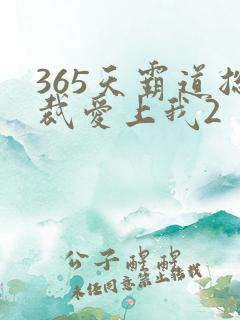 365天霸道总
裁爱上我2
公子醒醒
未经同意禁止转载